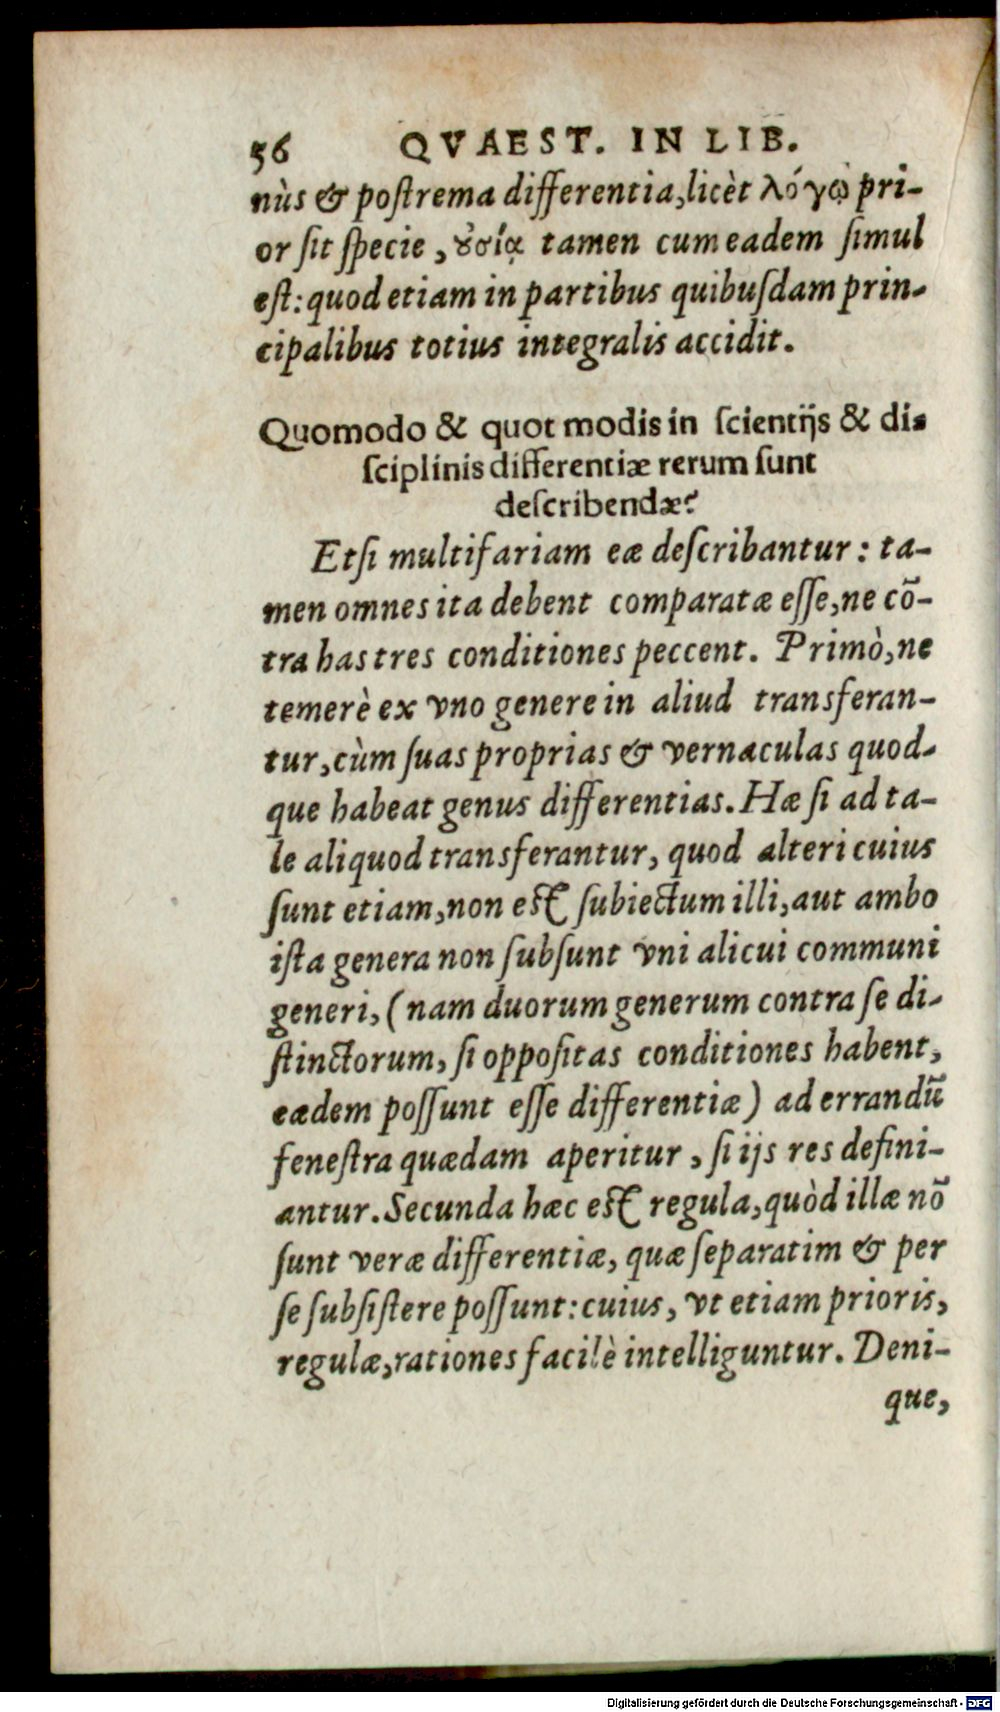 56 QVAEST. IN LIB.
nùs & poſtrema differentia, licèt λόγῳ pri-
or ſit ſpecie, ȣ̓σίᾳ tamen cum eadem ſimul
eſt: quod etiam in partibus quibuſdam prin-
cipalibus totius integralis accidit.
Quomodo & quot modis in ſcientijs & di-
ſciplinis differentiæ rerum ſunt
deſcribendæ?
Etſi multifariam eæ deſcribantur: ta-
men omnes ita debent comparatæ eſſe, ne cō-
tra has tres conditiones peccent. Primò, ne
temerè ex vno genere in aliud transferan-
tur, cùm ſuas proprias & vernaculas quod-
que habeat genus differentias. Hæ ſi ad ta-
le aliquod transferantur, quod alteri cuius
ſunt etiam, non eſt ſubiectum illi, aut ambo
iſta genera non ſubſunt vni alicui communi
generi, (nam duorum generum contra ſe di-
ſtinctorum, ſi oppoſitas conditiones habent,
eædem poſſunt eſſe differentiæ) ad errandū
feneſtra quædam aperitur, ſi ijs res defini-
antur. Secunda hæc eſt regula, quòd illæ nō
ſunt veræ differentiæ, quæ ſeparatim & per
ſe ſubſiſtere poſſunt: cuius, vt etiam prioris,
regulæ, rationes facilè intelliguntur. Deni-
que,
Digitalisierung gefördert durch die Deutsche Forschungsgemeinschaft - DFG